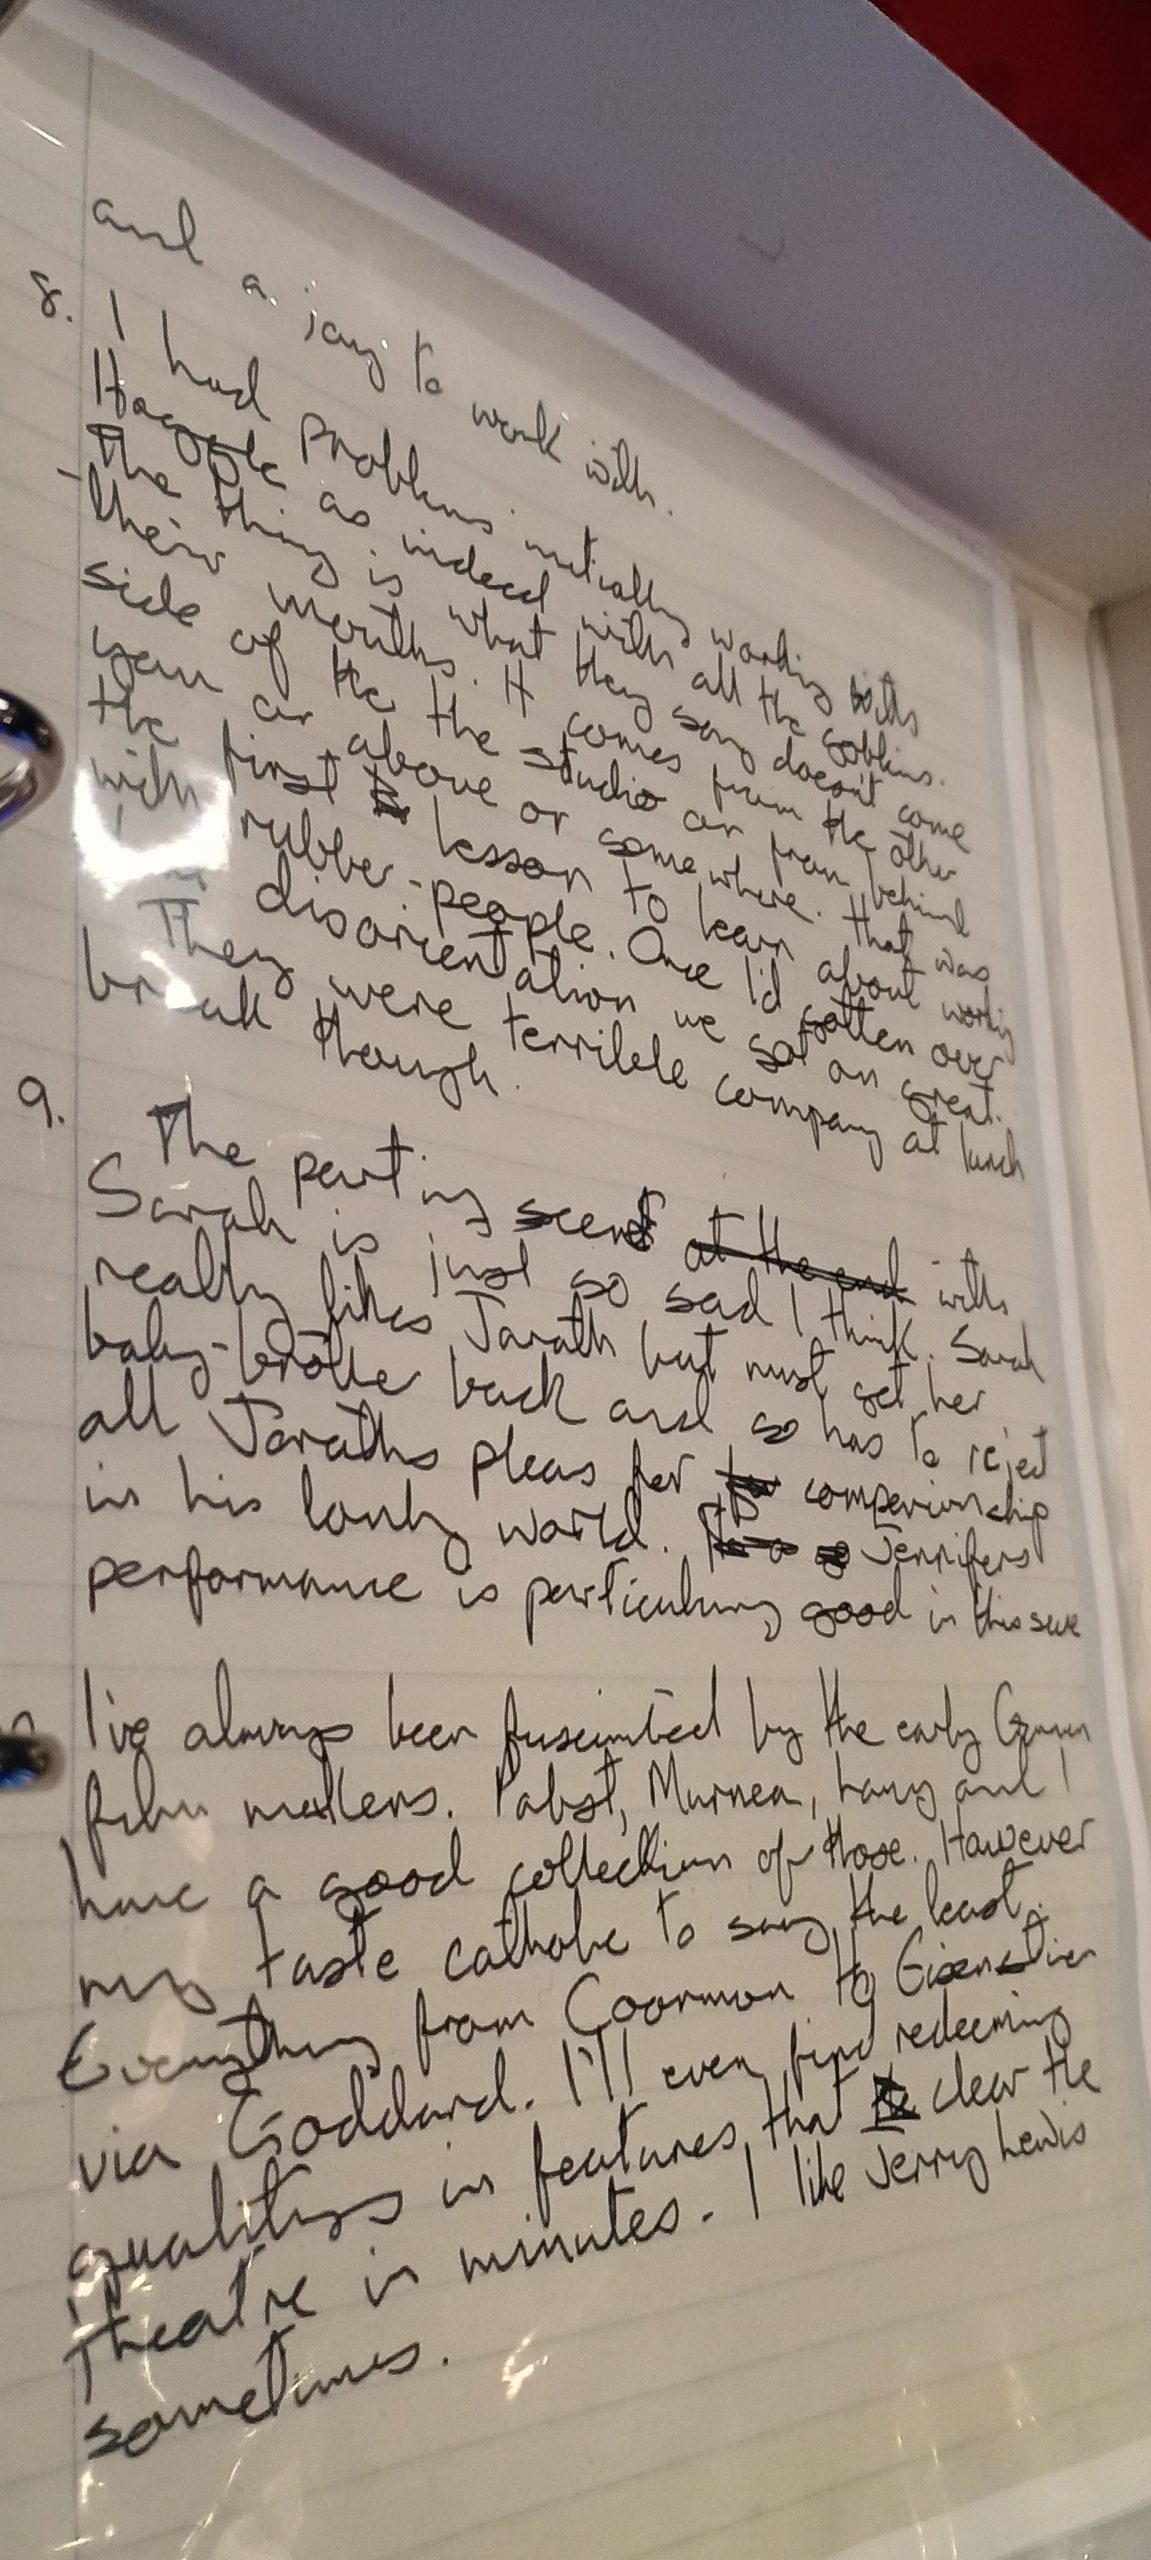 and a joy to work with.
8. I had problems initially working with
Hoggle as indeed with all the goblins.
The thing is what they say doesn't come
their mouths. It comes from the other
side of the the studio or from behind
you or above or somewhere. That was
the first lesson to learn about working
with rubber-people. Once I'd gotten over
disorientation we got on great.
They were terrible company at lunch
break though.
9. The parting scene at the end with
Sarah is just so sad I think. Sarah
really likes Jarath but must get her
baby-brother back and so has to reject
all Jaraths pleas for companionship
in his lonly world. Jennifers
performance is particulary good in this
I've always been fascinated by the early German
film makers. Pabst, Murnea, Lang and I
have a good collection of those. However
my taste catholic to say the least.
Everything from Coorman to Eisenstien
via Goddard. I'll even find redeeming
qualitys in features that clear the
theatre in minutes. I like Jerry Lewis
sometimes.